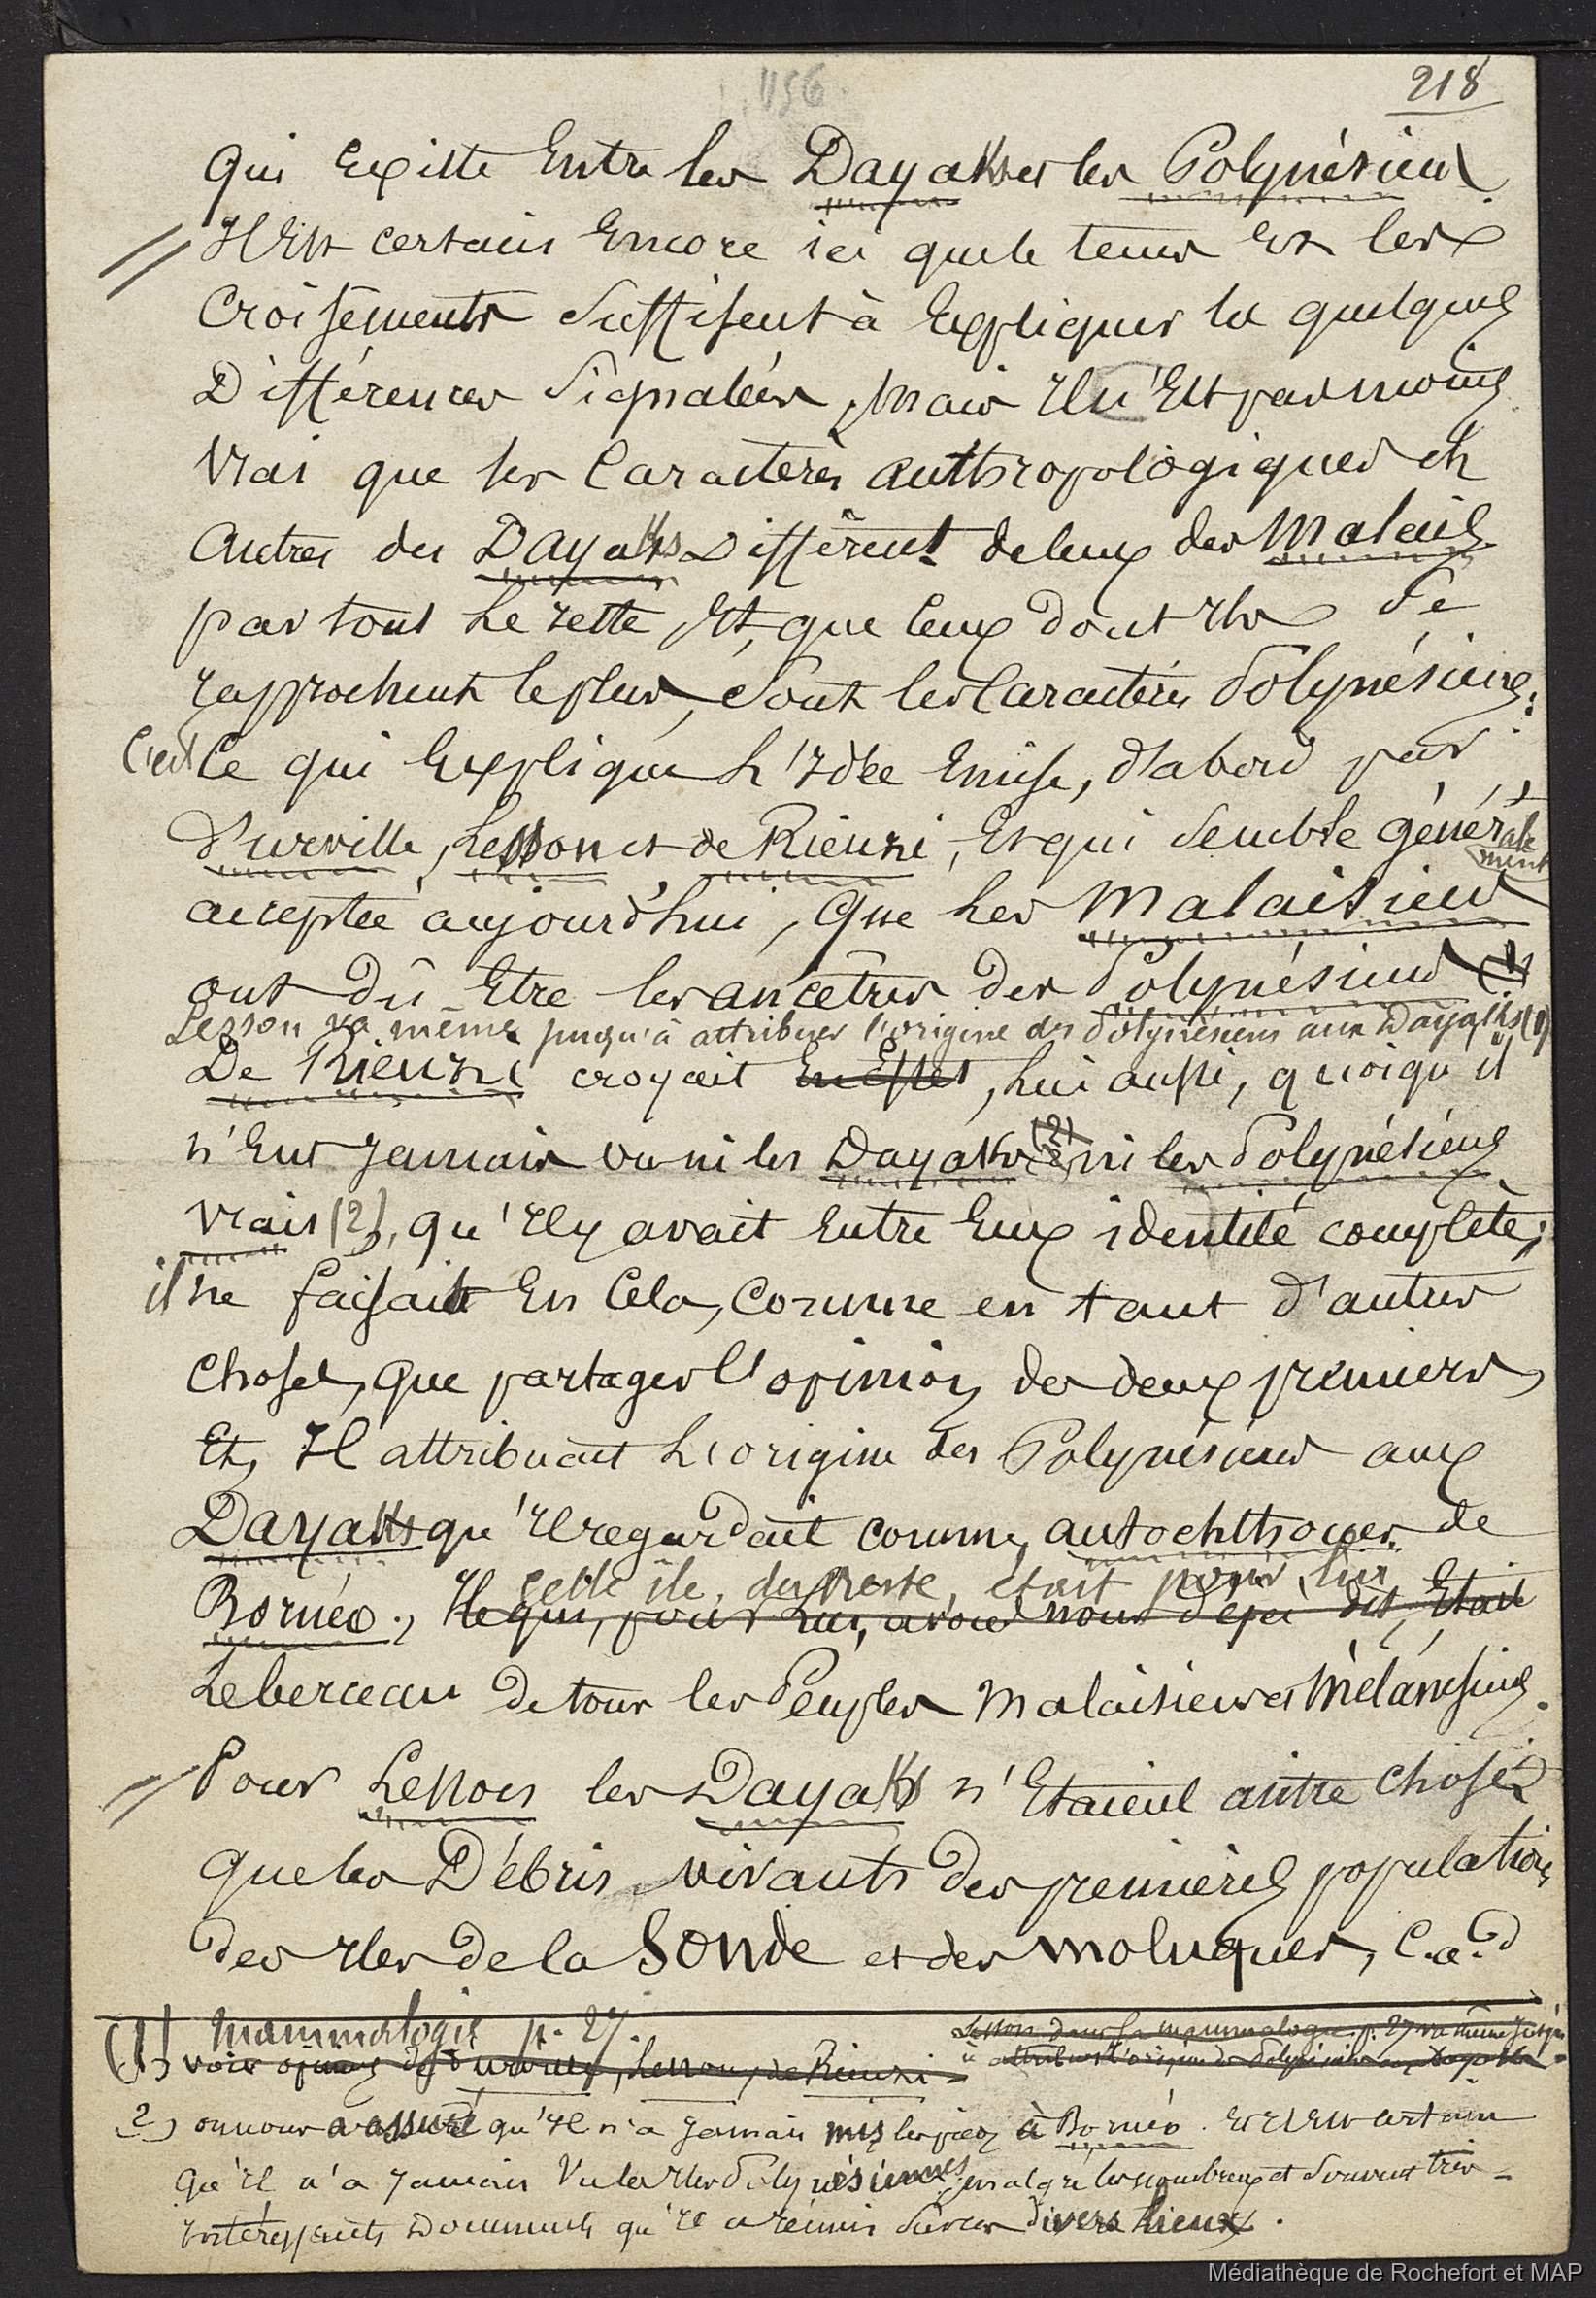 1156
218
qui existe entre les Dayaks et les Polynésiens.
Il est certain encore ici que le tems et les
croisements suffisent à expliquer les quelques
différences signalées, mais il n'est pas moins
vrai que les caractères anthropologiques et
autres des Dayaks diffèrent de ceux des Malais
par tout le reste, et que ceux dont ils se
rapprochent le plus, sont les caractères Polynésiens:
C'est ce qui explique l'idée émise, d'abord par
d'urville, Lesson et de Rienzi, et qui semble généralement
acceptée aujourd'hui, que les Malaisiens
ont dû être les ancêtres des Polynésiens (1)
Lesson va même jusqu'à attribuer l'origine des Polynésiens aux Dayaks (1)
De Rienzi croyait en effet, lui aussi, quoiqu'il
n'eut jamais vu ni les Dayaks (2) ni les Polynésiens
vrais (2), qu'il y avait entre eux identité complète;
il ne faisait en cela, comme en tant d'autres
choses, que partager l'opinion des deux premiers,
et, il attribuait l'origine des Polynésiens aux
Dayaks qu'il regardait comme autochthones de
cette île, du reste, était pour lui
Bornéo; île qui, pour lui, avons nous déjà dit, était
le berceau de tous les Peuples Malaisiens et Mélanésiens.
Pour Lesson les Dayaks n'étaient autre chose
que les débris vivants des premières populations
des îles de la Sonde et des moluques, c.a.d
(1) Mammalogie p. 27.
Lesson dans sa mammalogie p. 27 va même jusqu'
à attribuer l'origine des Polynésiens aux Dayaks
(1) voir opinions de d'urville, Lesson, de Rienzi
2) on nous a assuré qu'il n'a jamais mis les pieds à Bornéo. Et il est certain
qu'il n'a jamais vu les îles Polynésiennes malgré les nombreux et souvent très
intéressants documents qu'il a réunis sur ces divers lieux.
Médiathèque de Rochefort et MAP